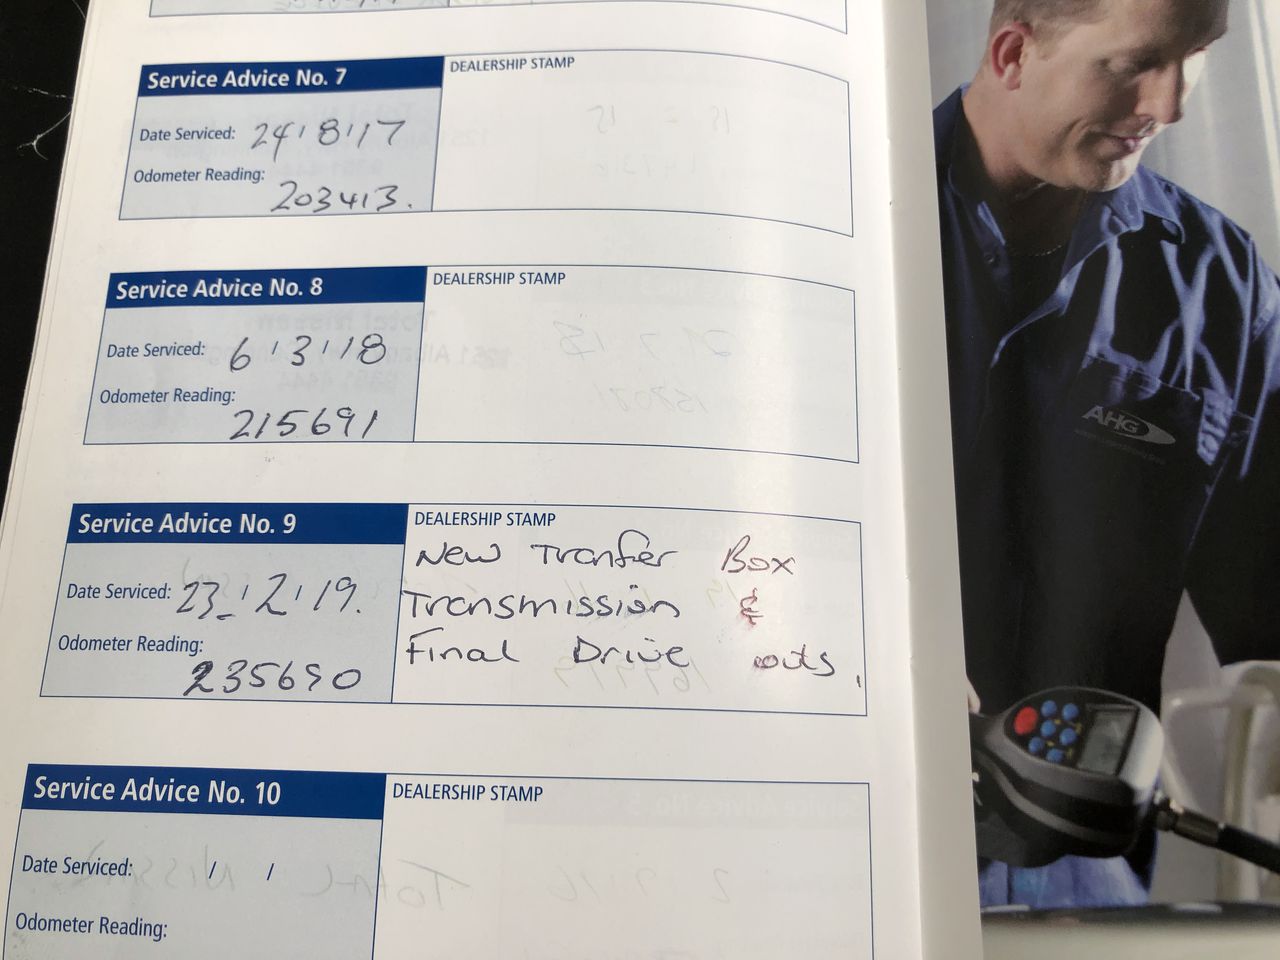 Service Advice No. 7
DEALERSHIP STAMP
Date Serviced: 24/8/17
Odometer Reading:
203413.
Service Advice No. 8
DEALERSHIP STAMP
Date Serviced: 6/3/18
Odometer Reading:
215691
Service Advice No. 9
DEALERSHIP STAMP
Date Serviced: 23/2/19.
Odometer Reading:
235690
New Tranfer Box
Transmission &
Final Drive outs,
Service Advice No. 10
DEALERSHIP STAMP
Date Serviced: / /
Odometer Reading:
AHG